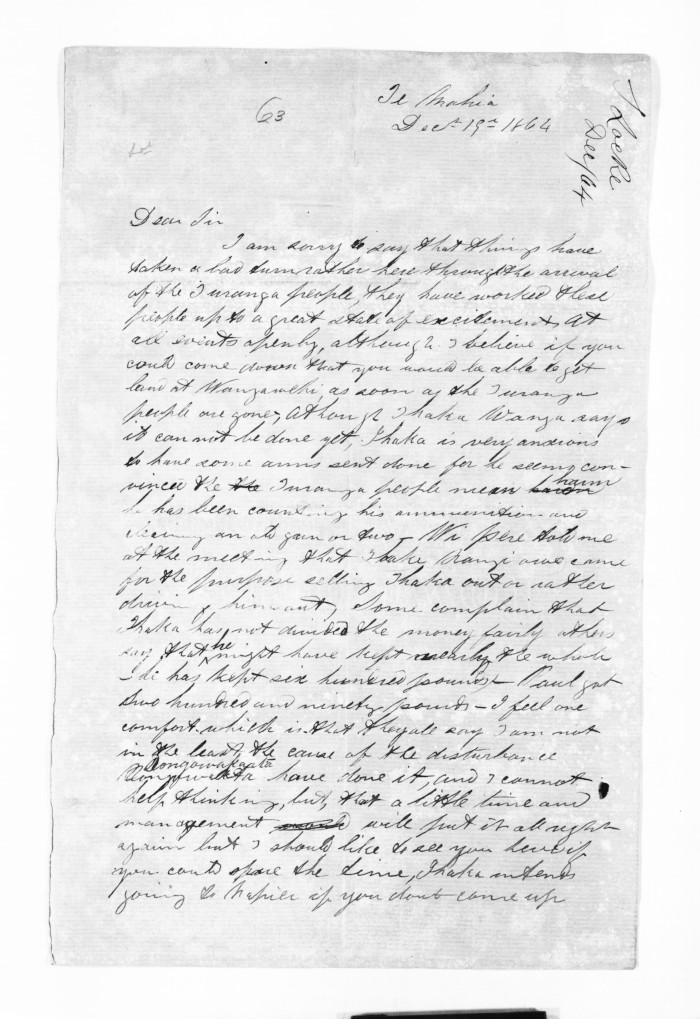 63
Te Mahia
Decr 19th 1864
S Locke
Dec/64
Dear Sir
I am sorry to say that things have
taken a bad turn rather here through the arrival
of the Turanga people, they have worked these
people up to a great state of excitement, At
all events openly, although I believe if you
could come down that you would be able to get
land at Wangawehi, as soon as the Turanga
people are gone, Athough Ihaka Wanga says
it can not be done yet, Ihaka is very anxious
to have some arms sent done for he seems con-
vinced the the Turanga people mean harm
he has been counting his ammunition and
cleaning an old gun or two, Wi Pere told me
at the meeting that came
for the purpose selling Ihaka out or rather
driving him out, Some complain that
Ihaka has not divided the money fairly others
say that he might have kept nearly the whole
I he has kept six hundred pounds Paul got
two hundred and ninety pounds - I feel one
comfort which is that they all say I am not
in the least, the cause of the disturbance
Rongowakaata
have done it, and I cannot
help thinking, but, that a little time and
management will put it all right
again but I should like to see you here if
you could spare the time, Ihaka intends
going to Napier if you dont come up